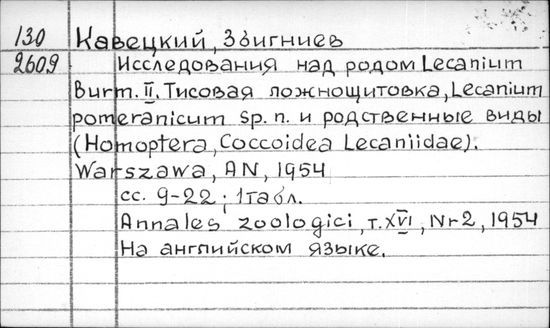 130 Кавецкий, Збигниев
2609 Исследования над родом Lecanium
Burm. II. Тисовая ложнощитовка, Lecanium
pomeranicum sp. n. и родственные виды
(Homoptera, Coccoidea Lecaniidae).
Warszawa, AN, 1954
сс. 9-22; 1 табл.
Annales zoologici, т. XVI, Nr 2, 1954
На английском языке.